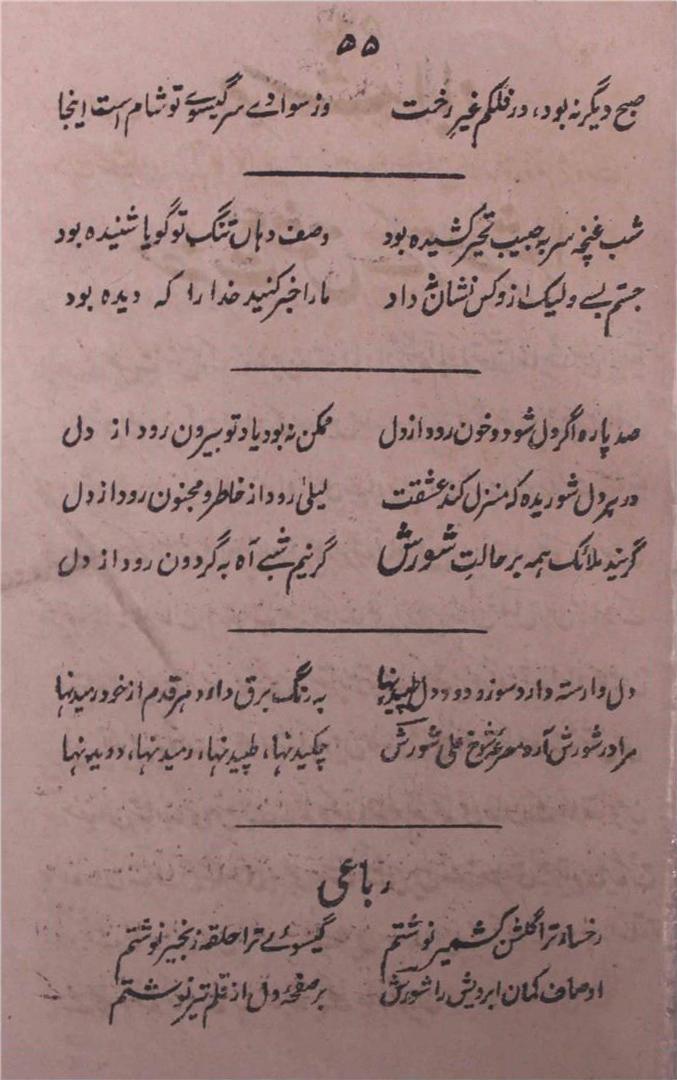 ۵۵
صبح دیگر نہ بود، در فلکم غیرِ رخت وز سوادے سر گیسوے تو شام است اینجا
شب غنچہ سر بہ جیب تحیر کشیدہ بود وصف دہان تنگ تو گویا شنیدہ بود
جستم بسے ولیک ازو کس نشاں نہ داد ما را خبر کنید خدا را کہ دیدہ بود
صد پارہ اگر دل شود و خون رود از دل ممکن نہ بود یاد تو بیرون رود از دل
در ہر دل شوریدہ کہ منزل کند عشقت لیلیٰ رود از خاطر و مجنون رود از دل
گریند ملائک ہمہ بر حالتِ شورش گر نیم شبے آہ بہ گردون رود از دل
دل وارستہ دارد سوز و دود دل طپیدنہا بہ رنگ برق دارد ہر قدم از خود رمیدنہا
مرا در شورش آرد مصرعۂ شوخ علی شورش چکیدنہا، طپیدنہا، رمیدنہا، دویدنہا
رباعی
رخسار ترا گلشن کشمیر نوشتم گیسوئے ترا حلقہ زنجیر نوشتم
اوصاف کمان ابرویش را شورش بر صفحۂ دل از قلم تیر نوشتم